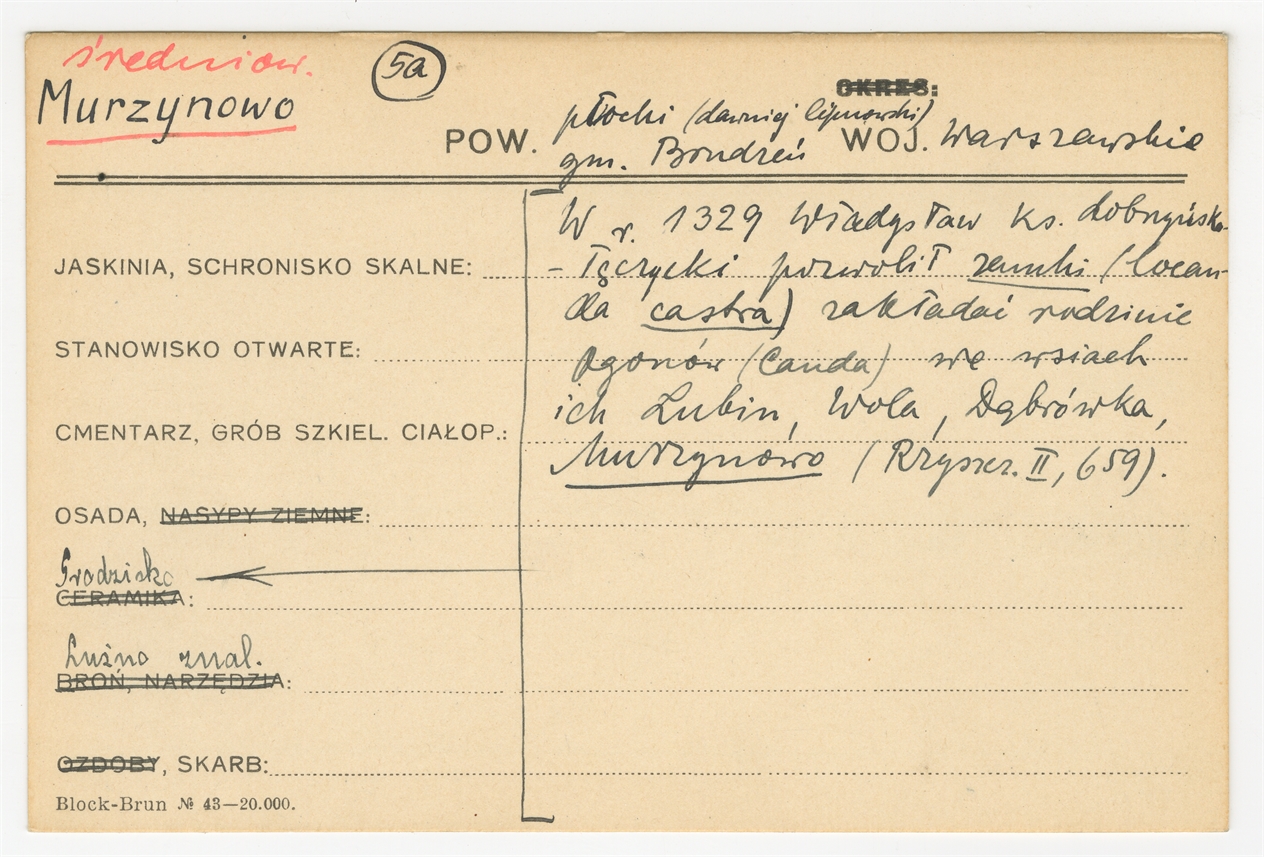 średniow.
Murzynowo
5a
OKRES:
POW. płocki (dawniej lipnowski) WOJ. Warszawskie
gm. Brudzeń
W r. 1329 Władysław ks. dobrzyńsko-
JASKINIA, SCHRONISKO SKALNE: - łęczycki pozwolił zamki (locan-
da castra) zakładać rodzinie
STANOWISKO OTWARTE: Ogonów (Cauda) we wsiach
ich Lubin, Wola, Dąbrówka,
CMENTARZ, GRÓB SZKIEL. CIAŁOP.:
Murzynowo (Rzyszcz. II, 659).
OSADA, NASYPY ZIEMNE:
Grodzisko
CERAMIKA:
Luźno znal.
BROŃ, NARZĘDZIA:
OZDOBY, SKARB:
Block-Brun № 43—20.000.